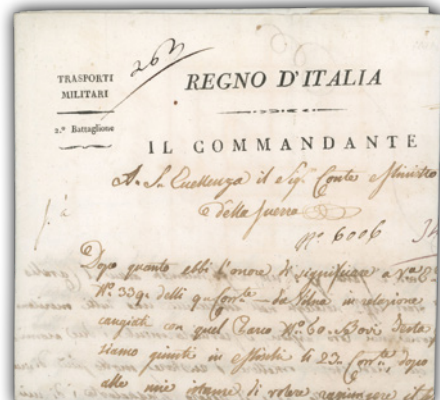 263
TRASPORTI
MILITARI
2.º Battaglione
REGNO D'ITALIA
IL COMMANDANTE
A S. Eccellenza il Sig. Conte Ministro
della Guerra
Nº 6006
Dopo quanto ebbi l'onore di significare a V.ra E.
Nº 339. delli corr.te da Vilna in relazione
cangiati con quel Parco Nº 60. Bovi
siamo giunti in li 23. Corr.te, dopo
alle mie istanze di volere raggiungere il